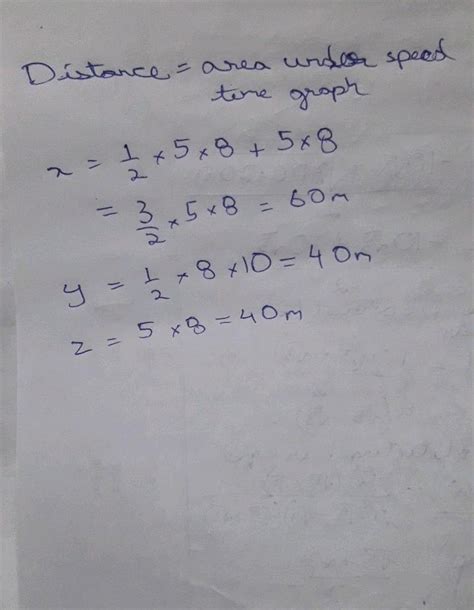 Distance = area under speed
time graph
x = 1/2 × 5 × 8 + 5 × 8
= 3/2 × 5 × 8 = 60m
y = 1/2 × 8 × 10 = 40m
z = 5 × 8 = 40m